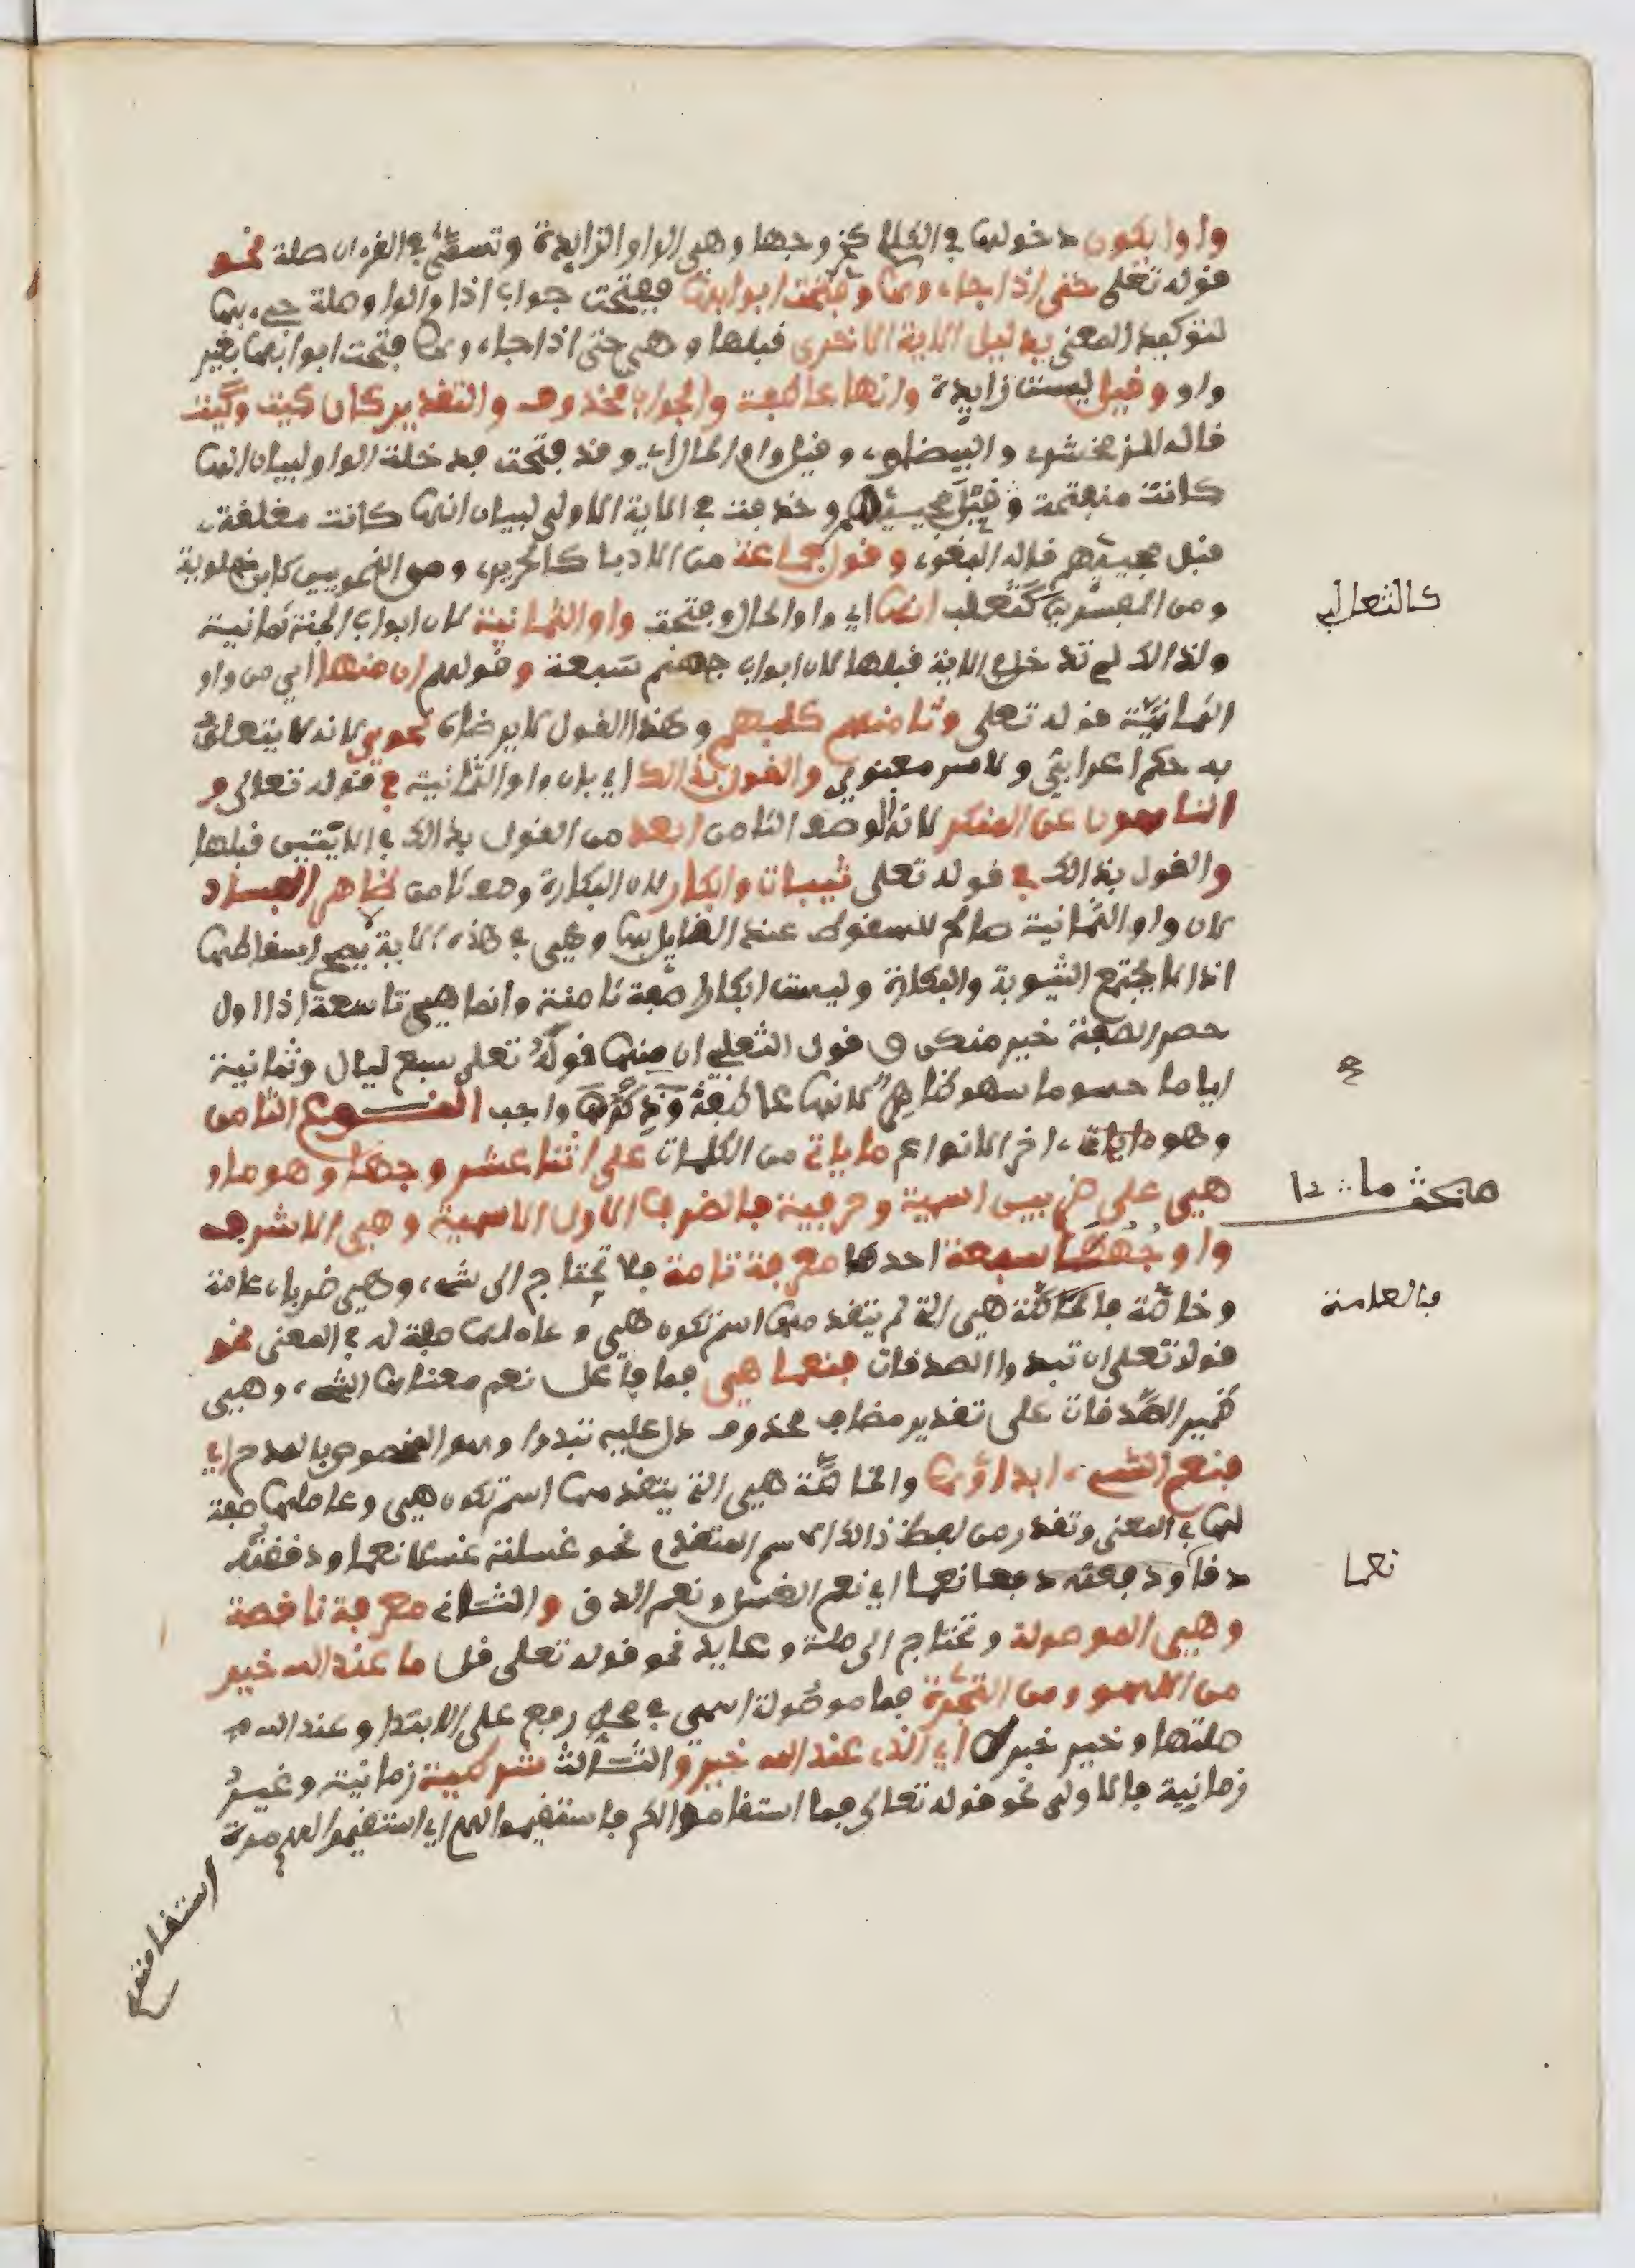 واوا يكون دخولها في الكلام كخروجها وهي الواو الزايدة وتسمى في القرءان صلة نحو
قوله تعلى حتى اذا جاءوها وفتحت ابوابها ففتحت جواب اذا والواو صلة جيء بها
لتوكيد المعنى بدليل الاية الاخرى قبلها وهي حتى اذا جاءوها فتحت ابوابها بغير
واو وقيل ليست زايدة وانها عاطفة والجواب محذوف والتقدير كان كيت وكيت
قاله الزمخشري والبيضاوي وقيل واو الحال اي وقد فتحت فدخلة الواو لبيان انها
كانت منفتحة قبل مجيئهم وحذفت في الاية الاولى لبيان انها كانت مغلقة
قبل مجيئهم قاله البغوي وقول جماعة من الادبا كالحريري ومن النحويين كابن خالوية
ومن المفسرين كثعلب انها اي واو الحال وفتحت واو الثمانية لان ابواب الجنة ثمانية
كالثعالبي
ولذالك لم تدخل الاية قبلها لان ابواب جهنم سبعة وقولهم ان منها اي من واو
الثمانية قوله تعلى وثامنهم كلبهم وهذا القول لا يرضاه نحوي لانه لا يتعلق
به حكم اعرابي ولا سر معنوي والقول بذالك اي بان واو الثمانية في قوله تعالى و
الناهون عن المنكر لانه الوصف الثامن ابعد من القول بذالك في الايتين قبلها
والقول بذالك في قوله تعلى ثيبات وابكارا لان البكارة وصف ثامن ظاهر الفساد
لان واو الثمانية صالح للسقوط عند القايل بها وهي في هذه الاية لا يصح اسقاطها
اذ لا يجتمع الثيوبة والبكارة وليست ابكارا صفة ثامنة وانما هي تاسعة اذ اول
حصر الصفة خير منكن وقول الثعلبي ان منها قوله تعلى سبع ليال وثمانية
ايام حسوما سهو ظاهر لانها عاطفة وذكرها واجب النوع الثامن
وهو ءاخر الانواع ما ياتي من الكلمات على اثنا عشر وجها وهو ما و
هي على ضربين اسمية وحرفية فالضرب الاول الاسمية وهي الاشرف
ما 12
واوجهها سبعة احدها معرفة تامة فلا تحتاج الى شيء وهي ضربان عامة
وخاصة فالعامة هي التي لم يتقدمها اسم تكون هي وعاملها صفة له في المعنى نحو
فالعامة
قوله تعلى ان تبدوا الصدقات فنعما هي فما فاعل نعم معناها الشيء وهي
ضمير الصدقات على تقدير مضاف محذوف دل عليه تبدوا وهو المخصوص بالمدح اي
فنعم الشيء ابداؤها والخاصة هي التي يتقدمها اسم تكون هي وعاملها صفة
لها في المعنى وتقدر من لفظ ذالك الاسم المتقدم نحو غسلته غسلا نعما ودققته
دقا نعما اي نعم الغسل ونعم الدق والثاني معرفة ناقصة
نعما
وهي الموصولة وتحتاج الى صلة وعايد نحو قوله تعلى قل ما عند الله خير
من اللهو ومن التجرة فما موصولة اسمي في محل رفع على الابتدا وعند الله
صلتها وخير خبر اي الذي عند الله خير والثالث شرطية زمانية وغير
زمانية فالاولى نحو قوله تعالى فما استقاموا لكم فاستقيموا لهم اي استقيموا لهم مدة
استقامتهم